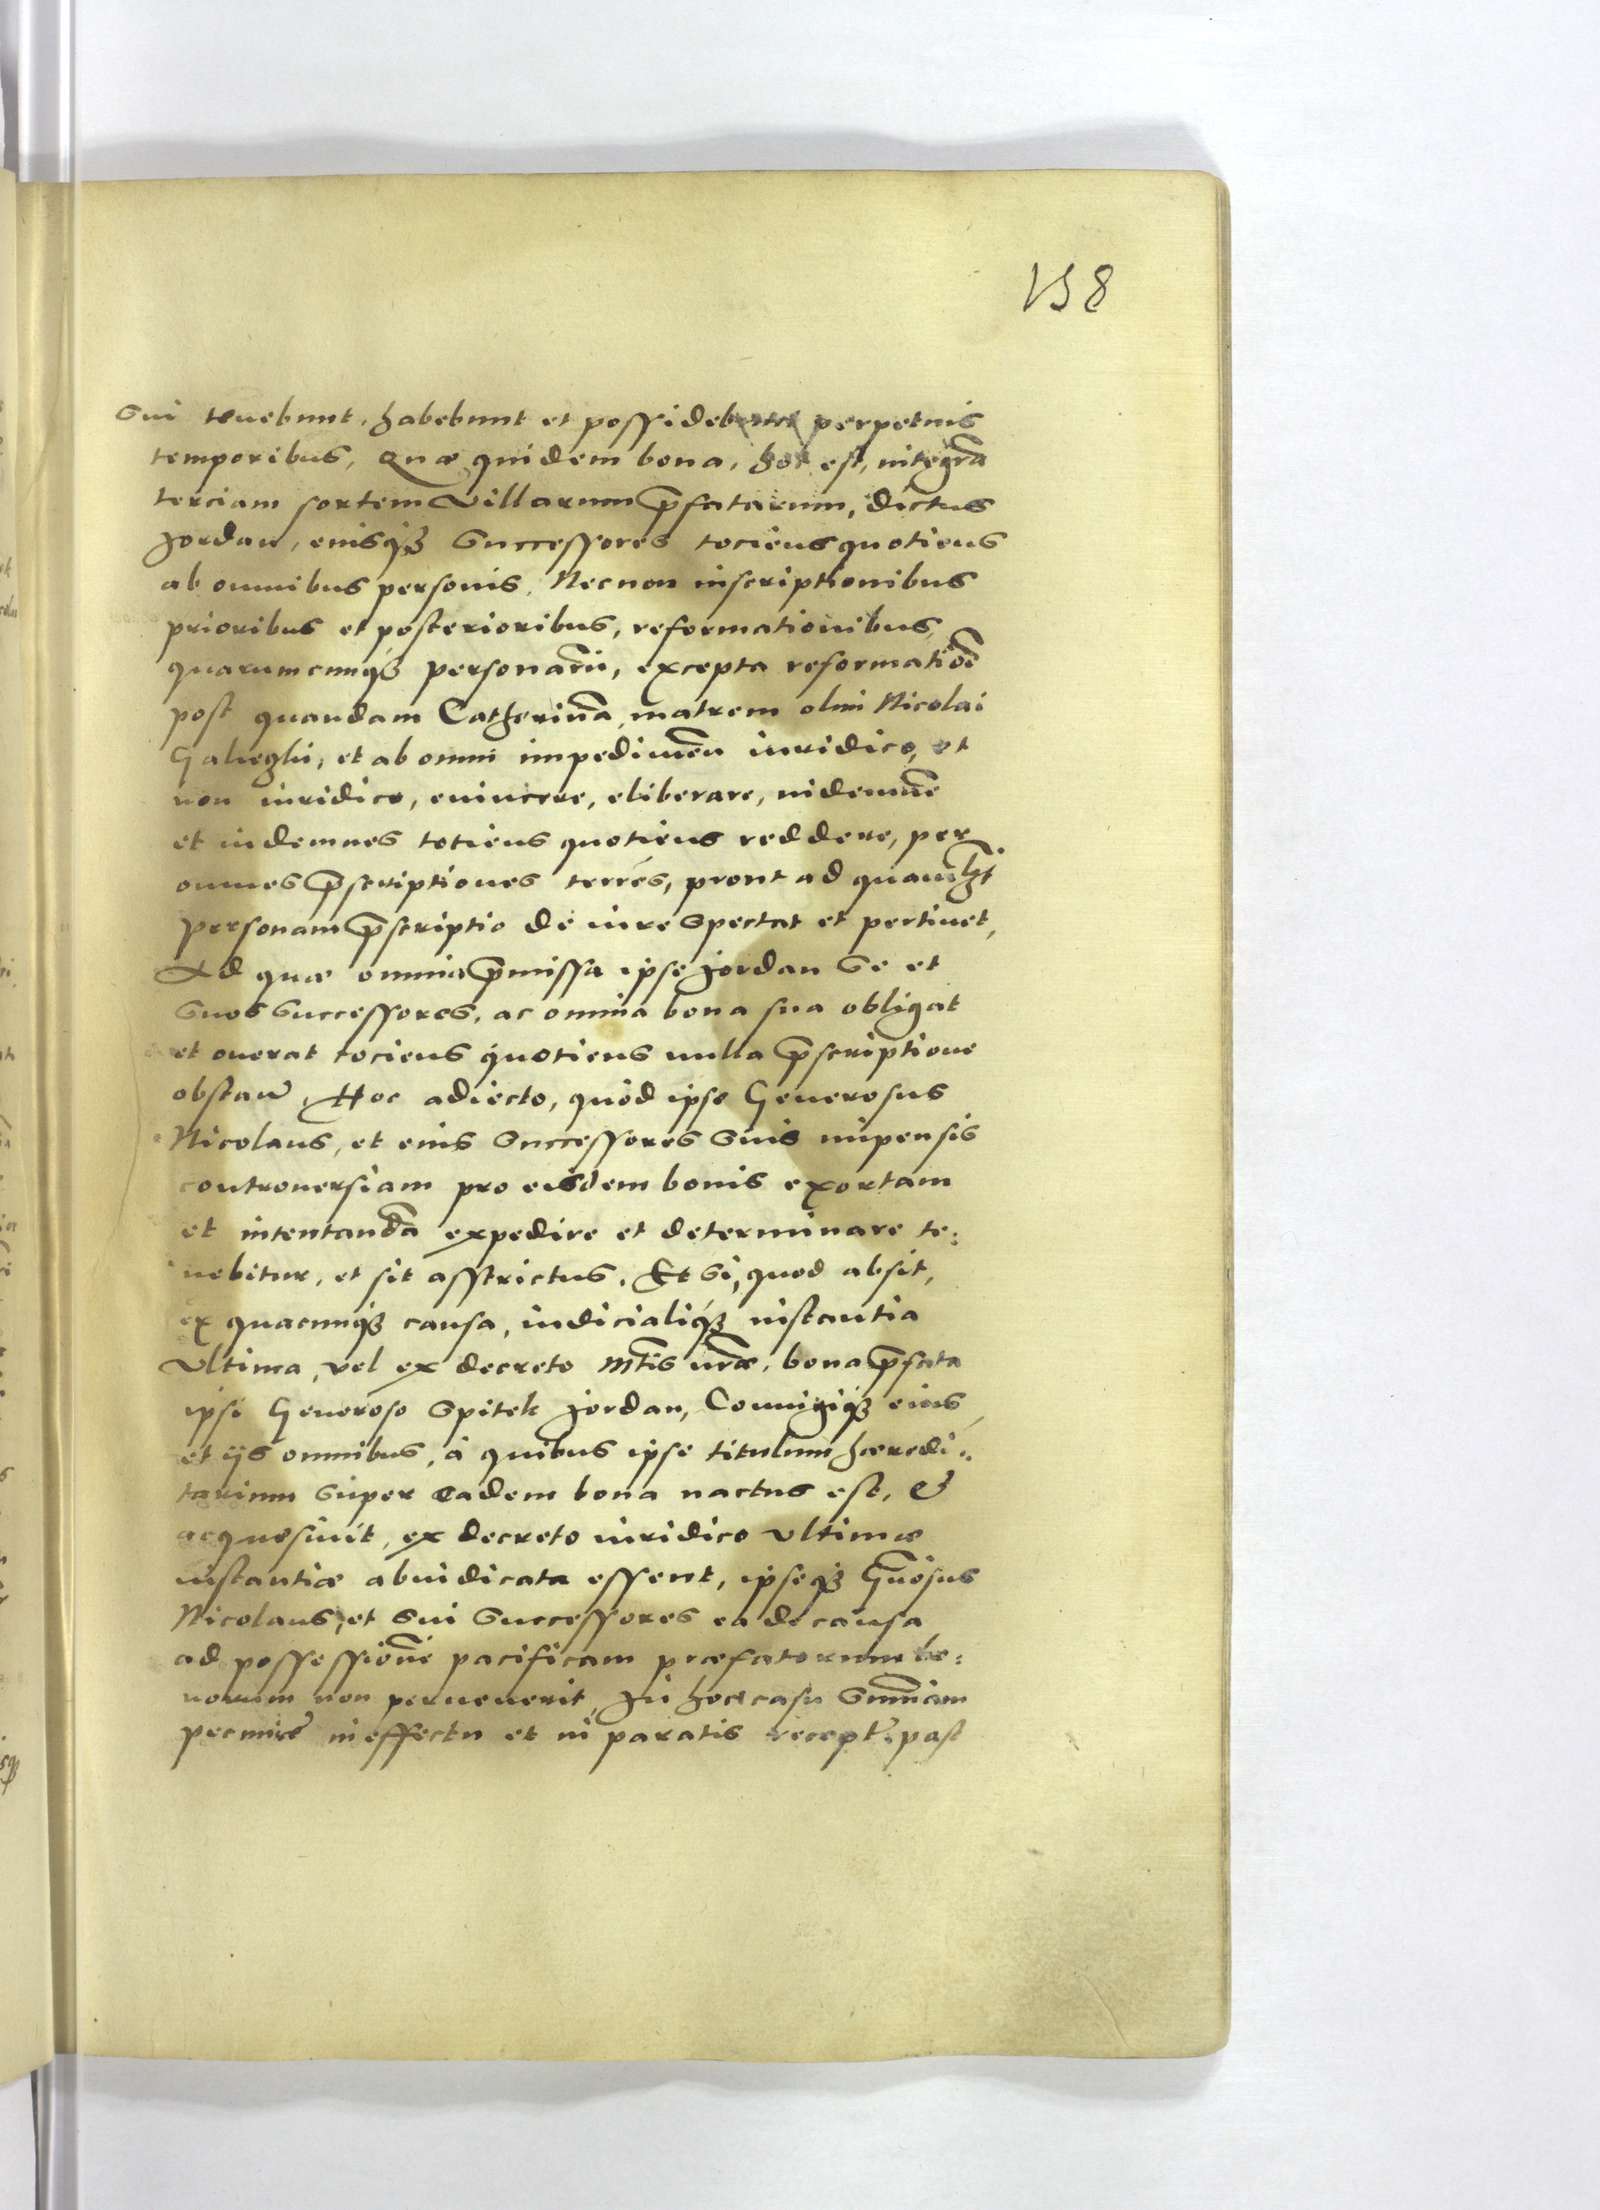 158
sui tenebunt, habebunt et possidebunt perpetuis
temporibus, Quæ quidem bona, hoc est, integrã
terciam sortem Villarum p̃fatarum, dictus
Jordan, eiusq́ successores tociens quotiens
ab omnibus personis, Necnon inscriptionibus
prioribus et posterioribus, reformationibus
quarumcunq́ personarũ, excepta reformatiõe
post quandam Catherinã matrem olim Nicolai
et ab omni impedimẽn iuridico, et
non iuridico, euincere, eliberare, indemnẽ
et indemnes totiens quotiens reddere, per
omnes p̃scriptiones terrés, prout ad quamlib̃t
personam p̃scriptio de iure spectat et pertinet,
Ad quæ omnia p̃missa ipse Jordan se et
suos successores, ac omnia bona sua obligat
et onerat tociens quotiens nulla p̃scriptione
obstañ, Hoc adiecto, quòd ipse Generosus
Nicolaus, et eius successores suis impensis
controuersiam pro eisdem bonis exortam
et intentandã expedire et determinare te:
nebitur, et sit asstrictus. Et si, quod absit,
ex quacunq́ causa, iudicialiq́ instantia
Vltima, vel ex decreto Mtis vræ, bona p̃fata
ipsi Generoso Spitek Jordan, Coniugiq́ eius,
et ijs omnibus, à quibus ipse titulum hæredi:
tarium super eadem bona nactus est, &
acquesiuit, ex decreto iuridico Vltimæ
instantiæ abiudicata essent, ipseq́ Gñosus
Nicolaus, et sui successores ea de causa
ad possessionẽ pacificam præfatorum bo:
norum non peruenerit, In hoc casu summam
pecuniæ in effectu et in paratis recept̃. post